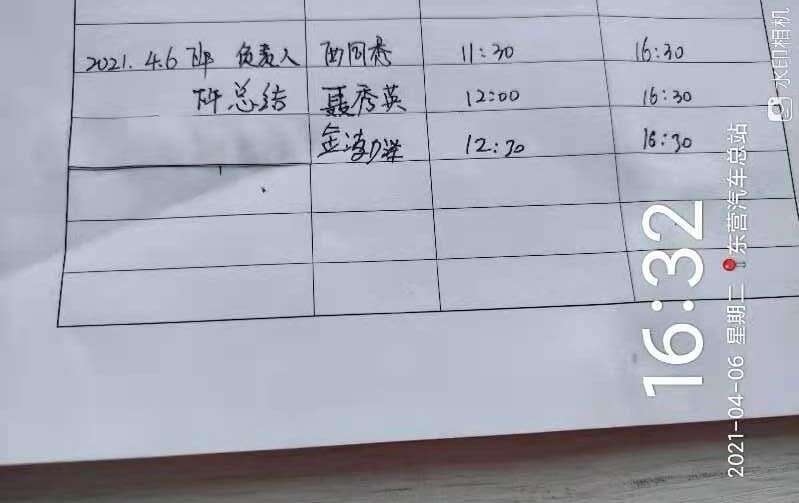 2021.4.6 下午 负责人 11:30 16:30
下午 总结 聂秀英 12:00 16:30
12:30 16:30
16:32
2021-04-06 星期二 东营汽车总站
水印相机